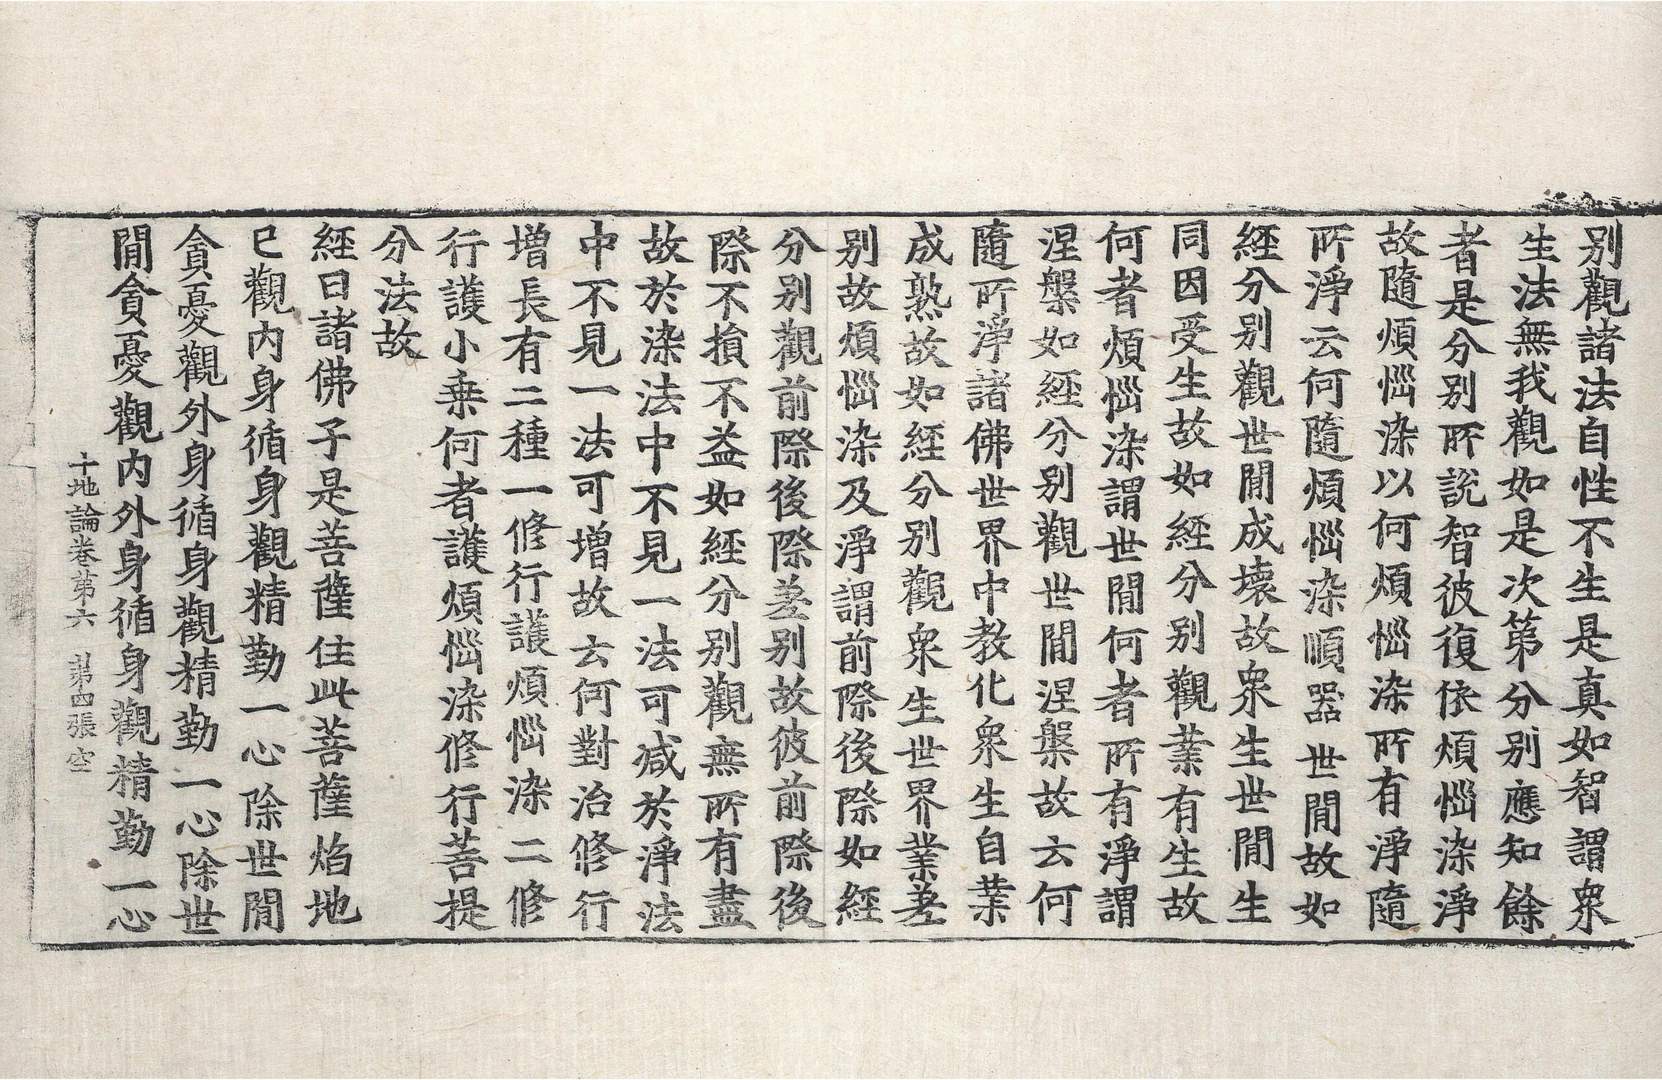 别觀諸法自性不生是真如智謂衆
生法無我觀如是次第分别應知餘
者是分别所說智彼復依煩惱染淨
故隨煩惱染以何煩惱染所有淨隨
所淨云何隨煩惱染順器世間故如
經分别觀世間成壞故衆生世間生
同因受生故如經分别觀業有生故
何者煩惱染謂世間何者所有淨謂
涅槃如經分别觀世間涅槃故云何
隨所淨諸佛世界中教化衆生自業
成熟故如經分别觀衆生世界業差
别故煩惱染及淨謂前際後際如經
分别觀前際後際差别故彼前際後
際不損不益如經分别觀無所有盡
故於染法中不見一法可減於淨法
中不見一法可增故云何對治修行
增長有二種一修行護煩惱染二修
行護小乗何者護煩惱染修行菩提
分法故
經曰諸佛子是菩薩住此菩薩焰地
已觀内身循身觀精勤一心除世間
貪憂觀外身循身觀精勤一心除世
間貪憂觀内外身循身觀精勤一心
十地論卷第六 第四張空